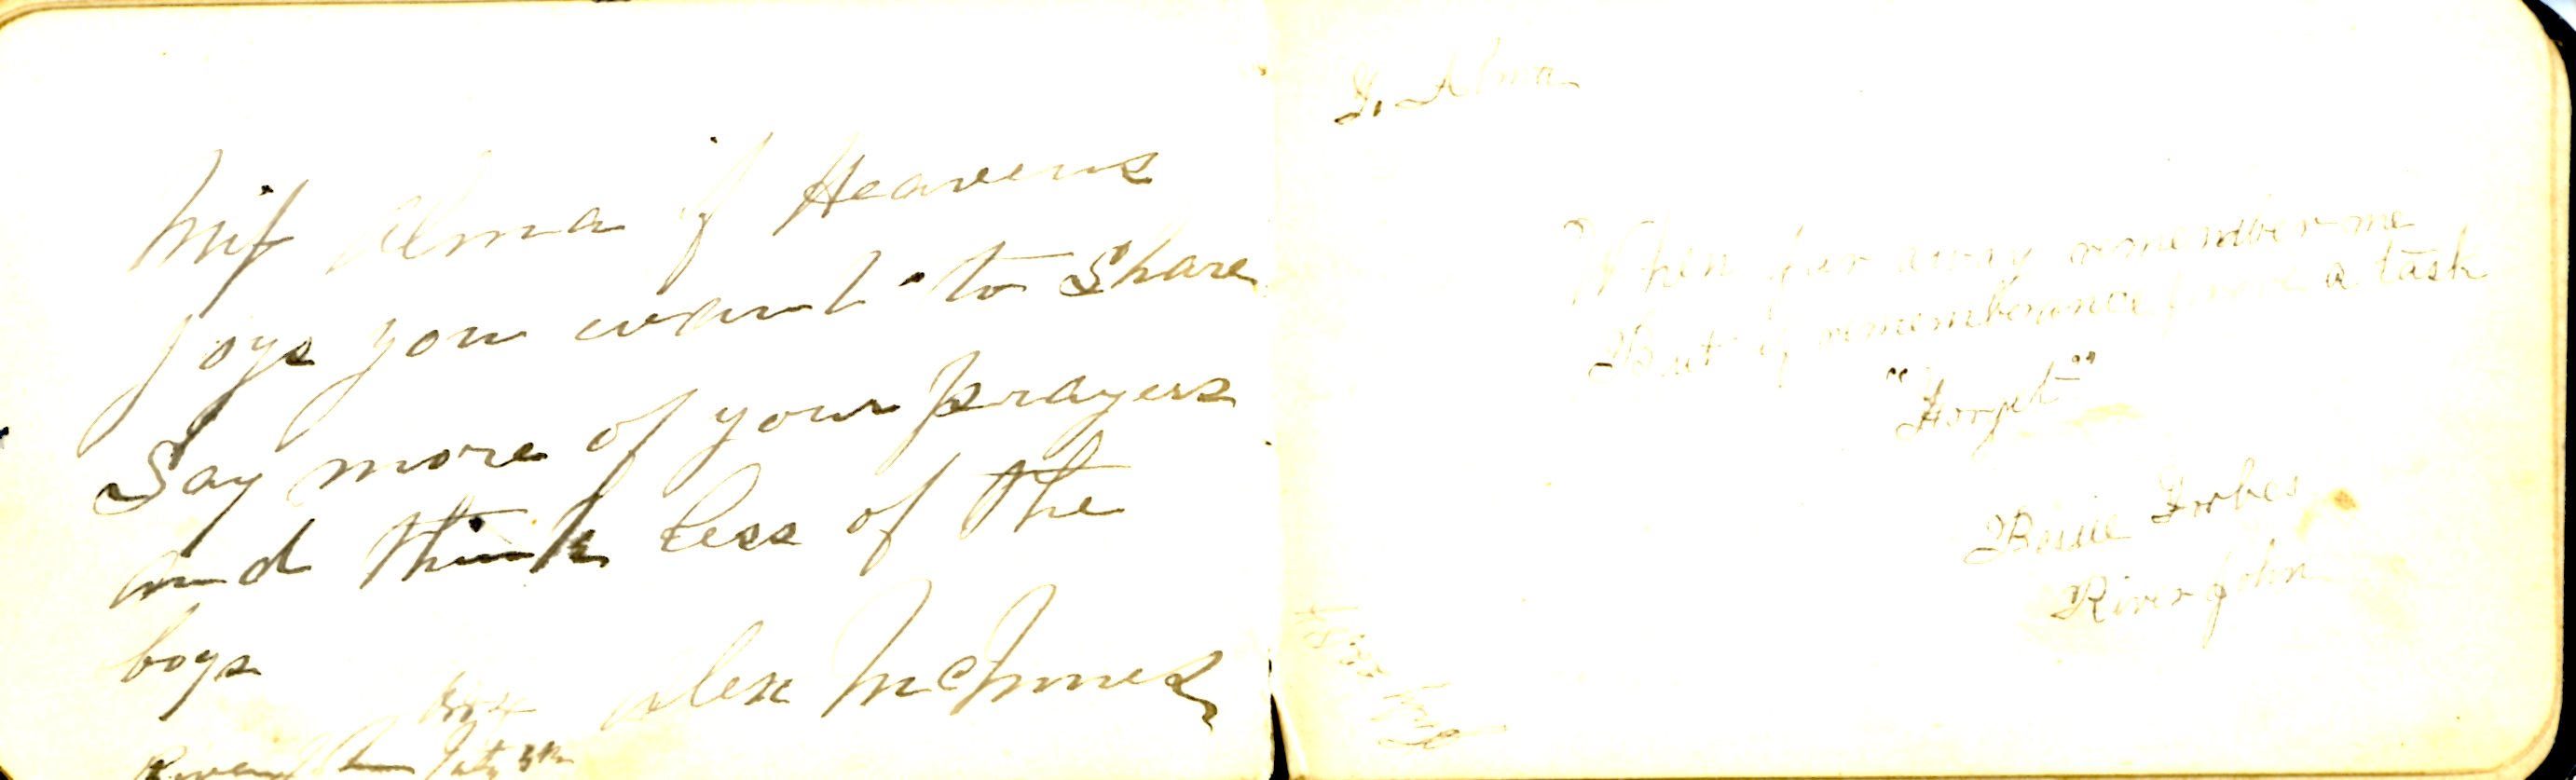 Miss Alma if Heavens
joys you want to Share
Say more of your prayers
and think less of the
boys
Alex McInnes
River John July 5th
To Alma
When far away remember me
But if rememberance prove a task
"Forget"
Bessie Forbes
River John